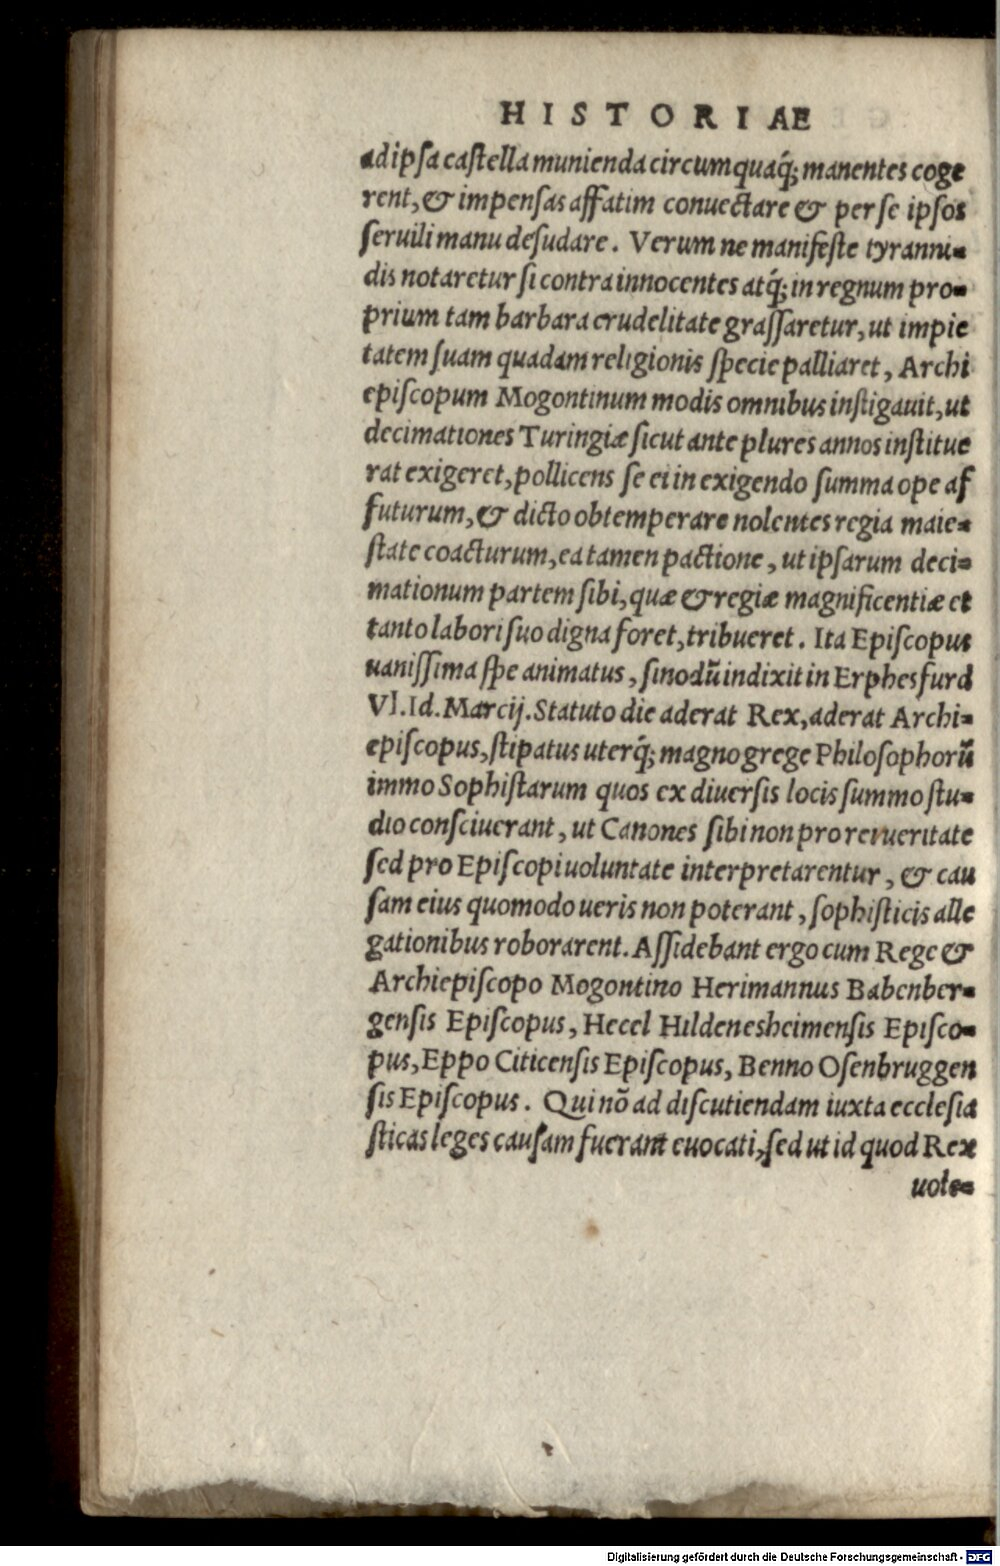 HISTORIAE
ad ipsa castella munienda circumquaq́; manentes coge
rent, & impensas affatim conuectare & per se ipsos
seruili manu desudare. Verum ne manifeste tyranni-
dis notaretur si contra innocentes atq́; in regnum pro-
prium tam barbara crudelitate grassaretur, ut impie
tatem suam quadam religionis specie palliaret, Archi
episcopum Mogontinum modis omnibus instigauit, ut
decimationes Turingiæ sicut ante plures annos institue
rat exigeret, pollicens se ei in exigendo summa ope af
futurum, & dicto obtemperare nolentes regia maie-
state coacturum, ea tamen pactione, ut ipsarum deci-
mationum partem sibi, quæ & regiæ magnificentiæ et
tanto labori suo digna foret, tribueret. Ita Episcopus
uanissima spe animatus, sinodū indixit in Erphesfurd
VI. Id. Marcij. Statuto die aderat Rex, aderat Archi-
episcopus, stipatus uterq́; magno grege Philosophorū
immo Sophistarum quos ex diuersis locis summo stu-
dio consciuerant, ut Canones sibi non pro rei ueritate
sed pro Episcopi uoluntate interpretarentur, & cau
sam eius quomodo ueris non poterant, sophisticis alle
gationibus roborarent. Assidebant ergo cum Rege &
Archiepiscopo Mogontino Herimannus Babenber-
gensis Episcopus, Hecel Hildenesheimensis Episco-
pus, Eppo Citicensis Episcopus, Benno Osenbruggen
sis Episcopus. Qui nō ad discutiendam iuxta ecclesia
sticas leges causam fuerant euocati, sed ut id quod Rex
uole-
Digitalisierung gefördert durch die Deutsche Forschungsgemeinschaft - DFG